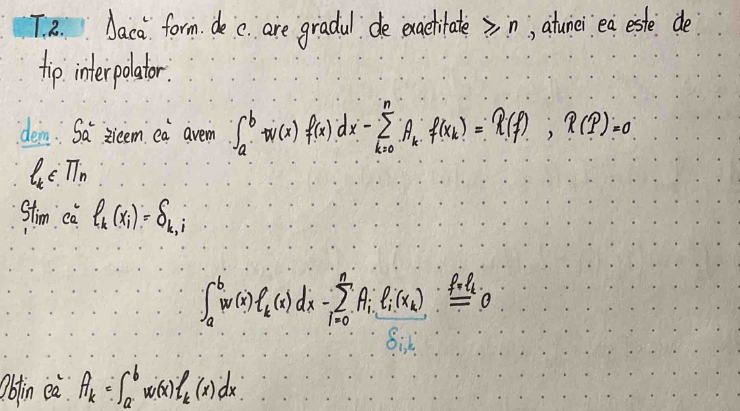 T.2. Dacă form. de c. are gradul de exactitate ⩾ n, atunci ea este de
tip interpolator.
dem. Să zicem că avem ∫_a^b w(x) f(x) dx - ∑_{k=0}^n A_k f(x_k) = R(f) , R(P)=0
l_k ∈ Π_n
Știm că l_k(x_i) = δ_{k,i}
∫_a^b w(x) l_k(x) dx - ∑_{i=0}^n A_i l_i(x_k) =^{f=l_k} 0
δ_{i,k}
Obțin că A_k = ∫_a^b w(x) l_k(x) dx